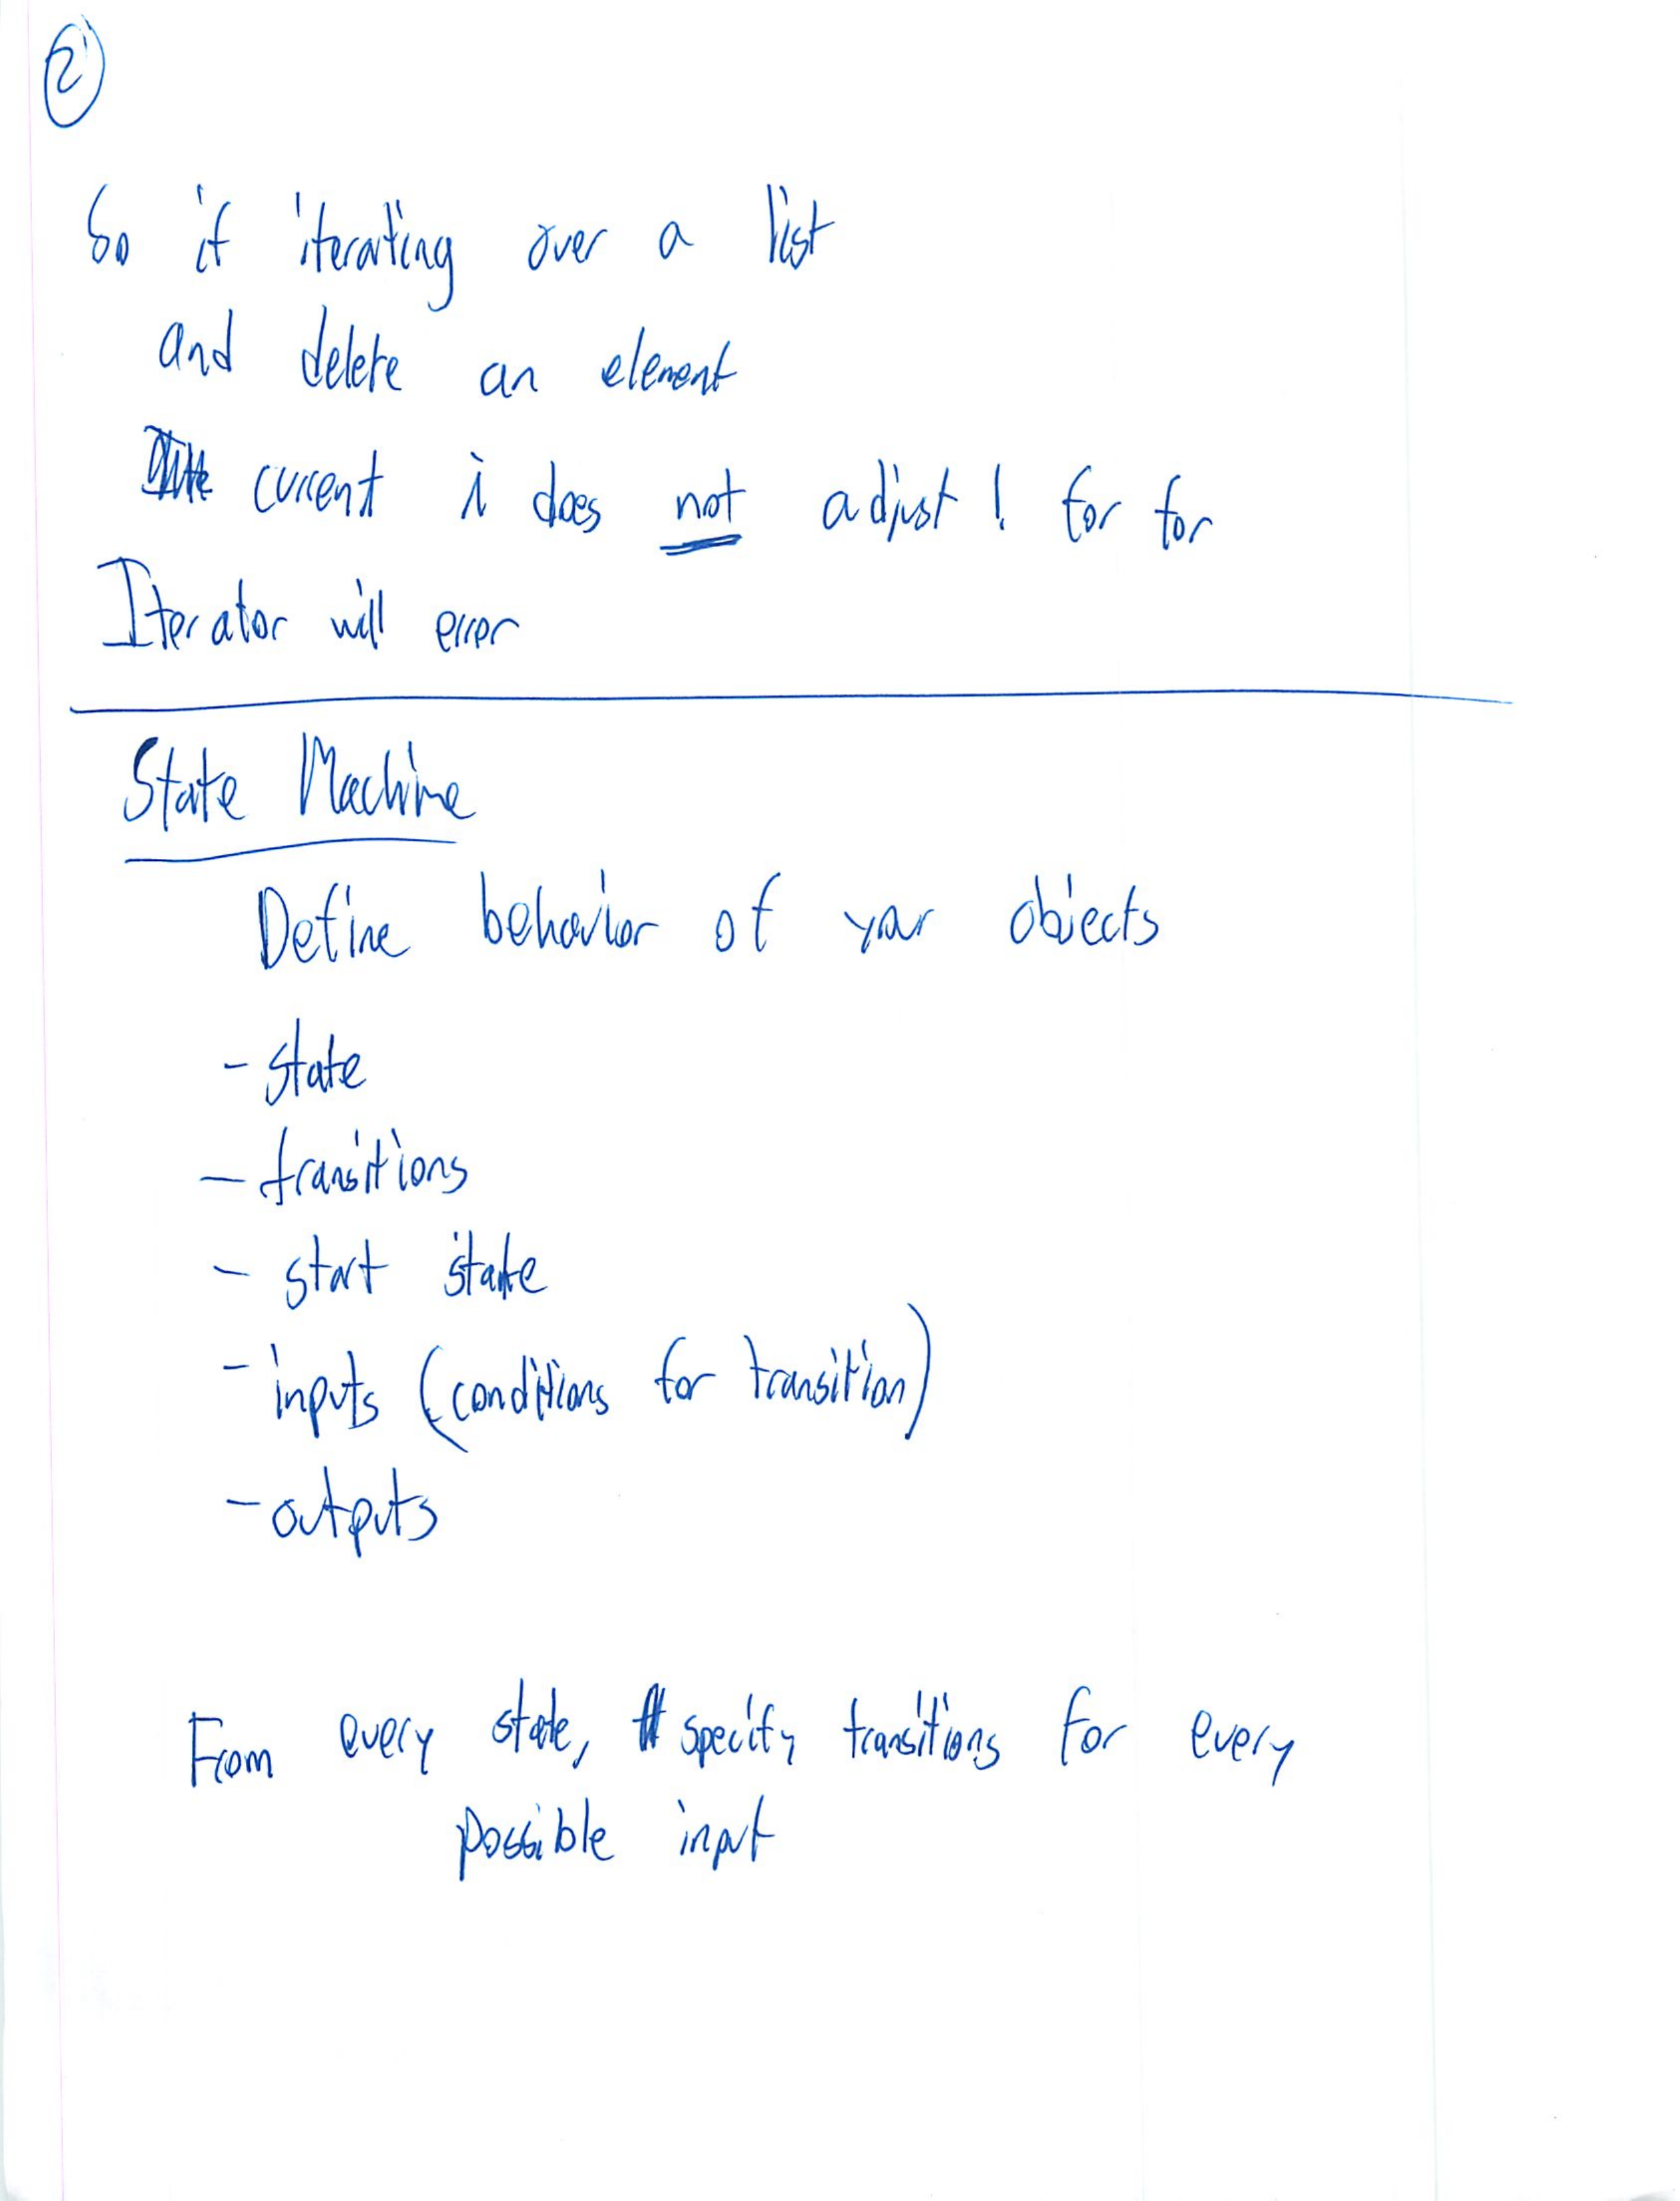 2
So if iterating over a list
and delete an element
current i does not adjust! for for
Iterator will error
State Machine
Define behavior of your objects
- state
- transitions
- start state
- inputs (conditions for transition)
- outputs
From every state, specify transitions for every
possible input